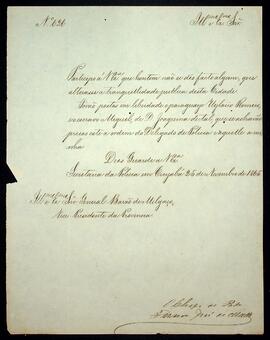 N.º 626
Ill.mo e Ex.mo Sr.
Participo á V.Ex.ª que hontem não se deu facto algum, que
alterasse a tranquillidade publica desta Cidade.
Forão postos em liberdade o paraguayo
e o escravo Miguel, de D. Joaquina de tal, que se achavão
presos este a ordem do Delegado de Policia e aquelle a
minha
Deos Guarde a V.Ex.ª
Secretaria da Policia em Cuyabá 24 de Novembro de 1865
Ill.mo e Ex.mo Sr. General Barão de Melgaço,
Vice Presidente da Provincia
O Chefe de P.
José de